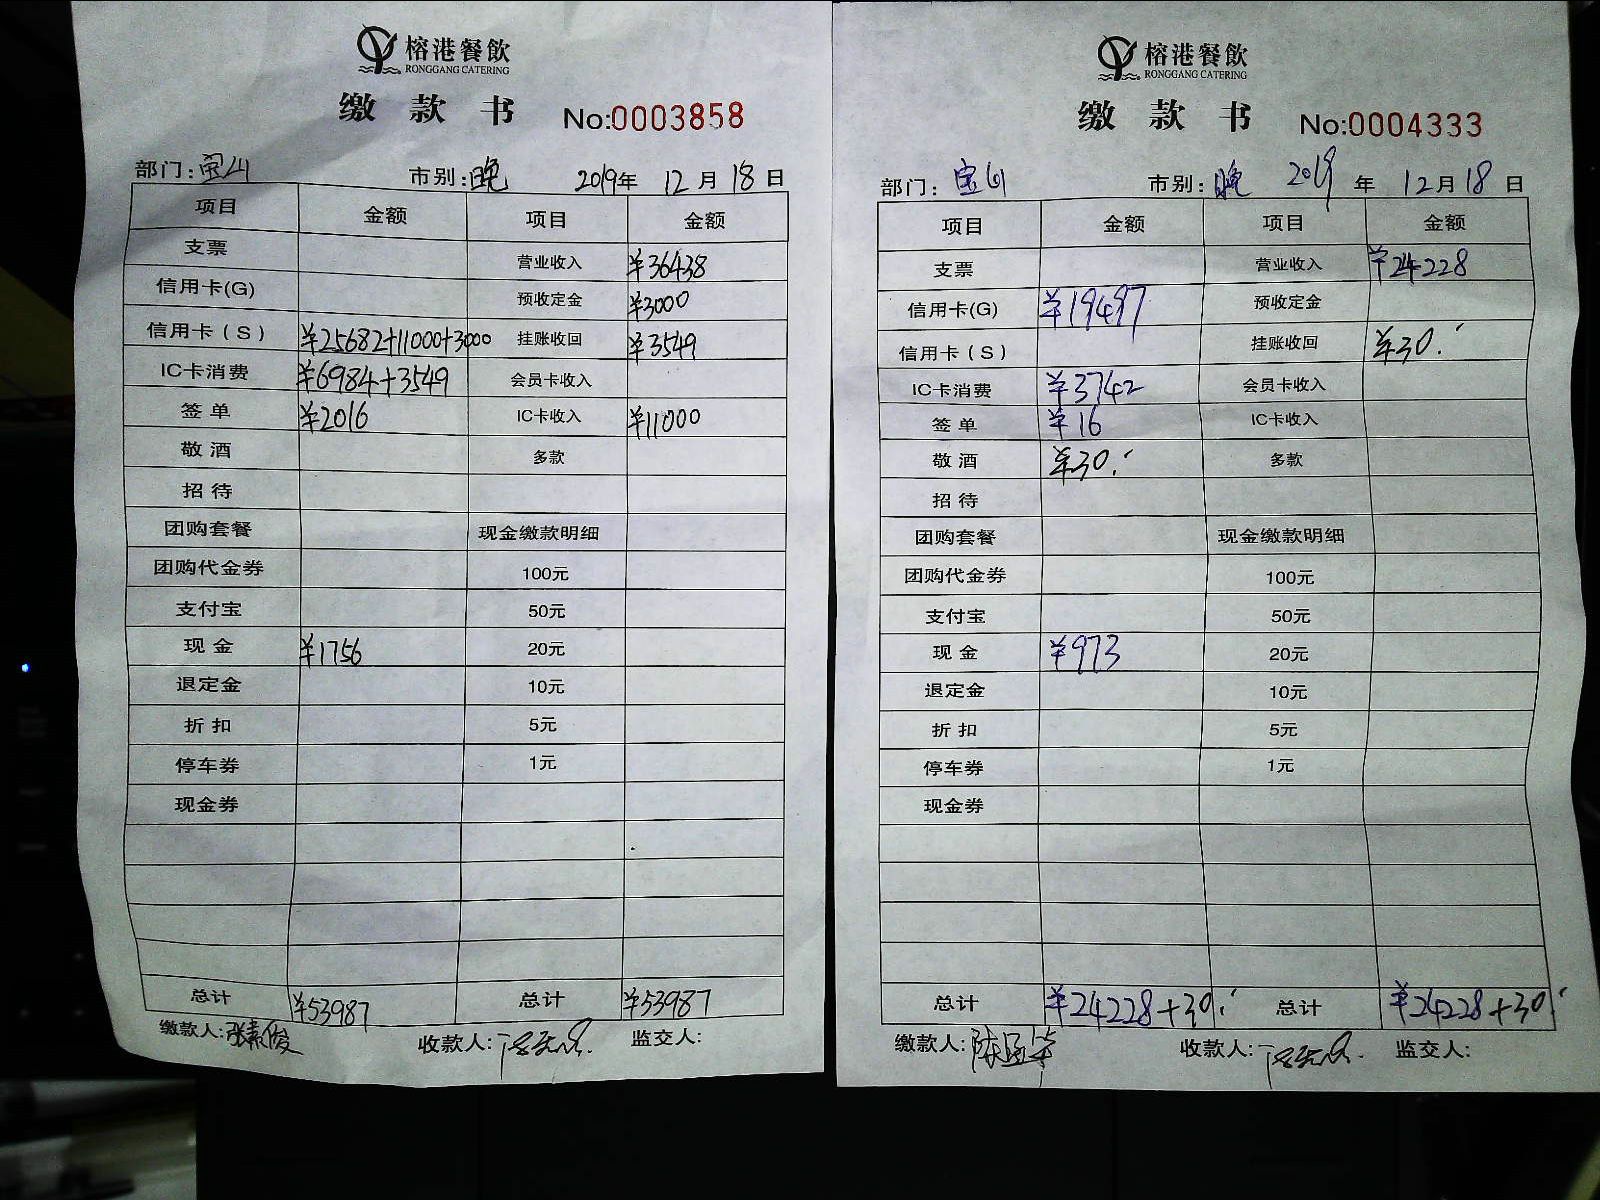 榕港餐飲
RONGGANG CATERING
缴款书 No:0003858
部门:宝山 市别:晚 2019年 12月 18日
项目 金额 项目 金额
支票 营业收入 ¥36438
信用卡(G) 预收定金 ¥3000
信用卡(S) ¥25682+11000+3000 挂账收回 ¥3549
IC卡消费 ¥6984+3549 会员卡收入
签单 ¥2016 IC卡收入 ¥11000
敬酒 多款
招待
团购套餐 现金缴款明细
团购代金券 100元
支付宝 50元
现金 ¥1756 20元
退定金 10元
折扣 5元
停车券 1元
现金券
总计 ¥53987 总计 ¥53987
缴款人:张素俊 收款人: 监交人:
榕港餐飲
RONGGANG CATERING
缴款书 No:0004333
部门:宝山 市别:晚 2019年 12月18日
项目 金额 项目 金额
支票 营业收入 ¥24228
信用卡(G) ¥19497 预收定金
信用卡(S) 挂账收回 ¥30.
IC卡消费 ¥3742 会员卡收入
签单 ¥16 IC卡收入
敬酒 ¥30. 多款
招待
团购套餐 现金缴款明细
团购代金券 100元
支付宝 50元
现金 ¥973 20元
退定金 10元
折扣 5元
停车券 1元
现金券
总计 ¥24228+30. 总计 ¥24228+30.
缴款人: 收款人: 监交人: